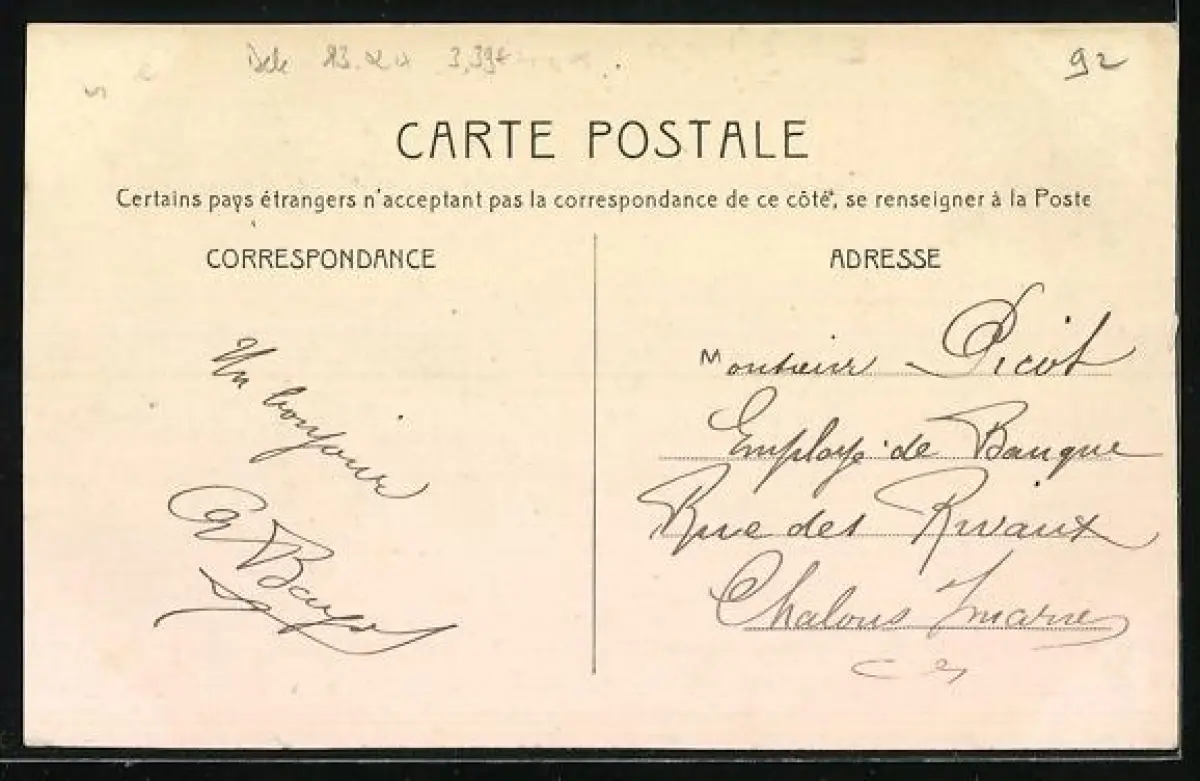 92
CARTE POSTALE
Certains pays étrangers n'acceptant pas la correspondance de ce côté, se renseigner à la Poste
CORRESPONDANCE
Un bonjour
ADRESSE
Monsieur Picot
Employé de Banque
Rue des Rivaux
Chalons s/marne